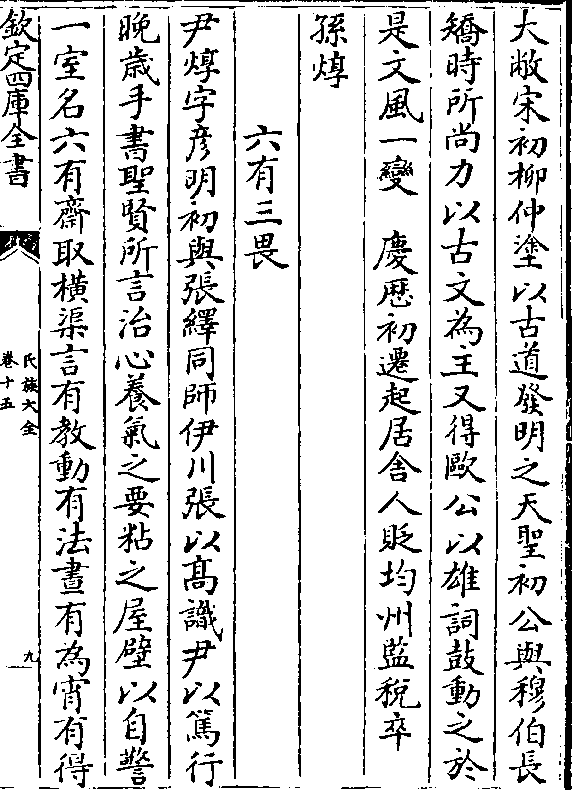 大敝宋初柳仲塗以古道發明之天聖初公與穆伯長
矯時所尚力以古文為王又得歐公以雄詞鼓動之於
是文風一變　慶厯初遷起居舍人貶均州監税卒
孫焞
六有三畏
尹焞字彦明初與張繹同師伊川張以髙識尹以篤行
晚歲手書聖賢所言治心養氣之要粘之屋壁以自警
一室名六有齋取橫渠言有教動有法晝有為宵有得
欽定四庫全書
氏族大全
卷十五
九